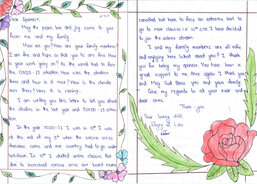 Dear Sponsor,
May the peace love and joy come to you
from me and my family.
How are you? How are your family members?
I am fine and hope so that you to are fine. How
is your work going on? As the world had to face
the COVID-19 situation. How was the situation
there and how is it now? How is the climate
there? Here it is raining.
I am writing you this letter to let you about
the studies in the last year and COVID-19
In the year 2020-21 I was in 10th. I was
at the end of my 9th when the corona virus
increase came and our country had to go under
lockdown. In 10th I started online classes. But
due to increased corona virus our board exams
cancelled but have to face an entrance test to
go to next class i.e. 11th. I have decided
to join the science stream.
I and my family members are all safe
and enjoying here. What about you? I thank
you for being my sponsor. You have been a
great support to me once again I thank you
and May God Bless you and your family.
Give my regards to all your near and
dear ones.
Thank you
Your loving child